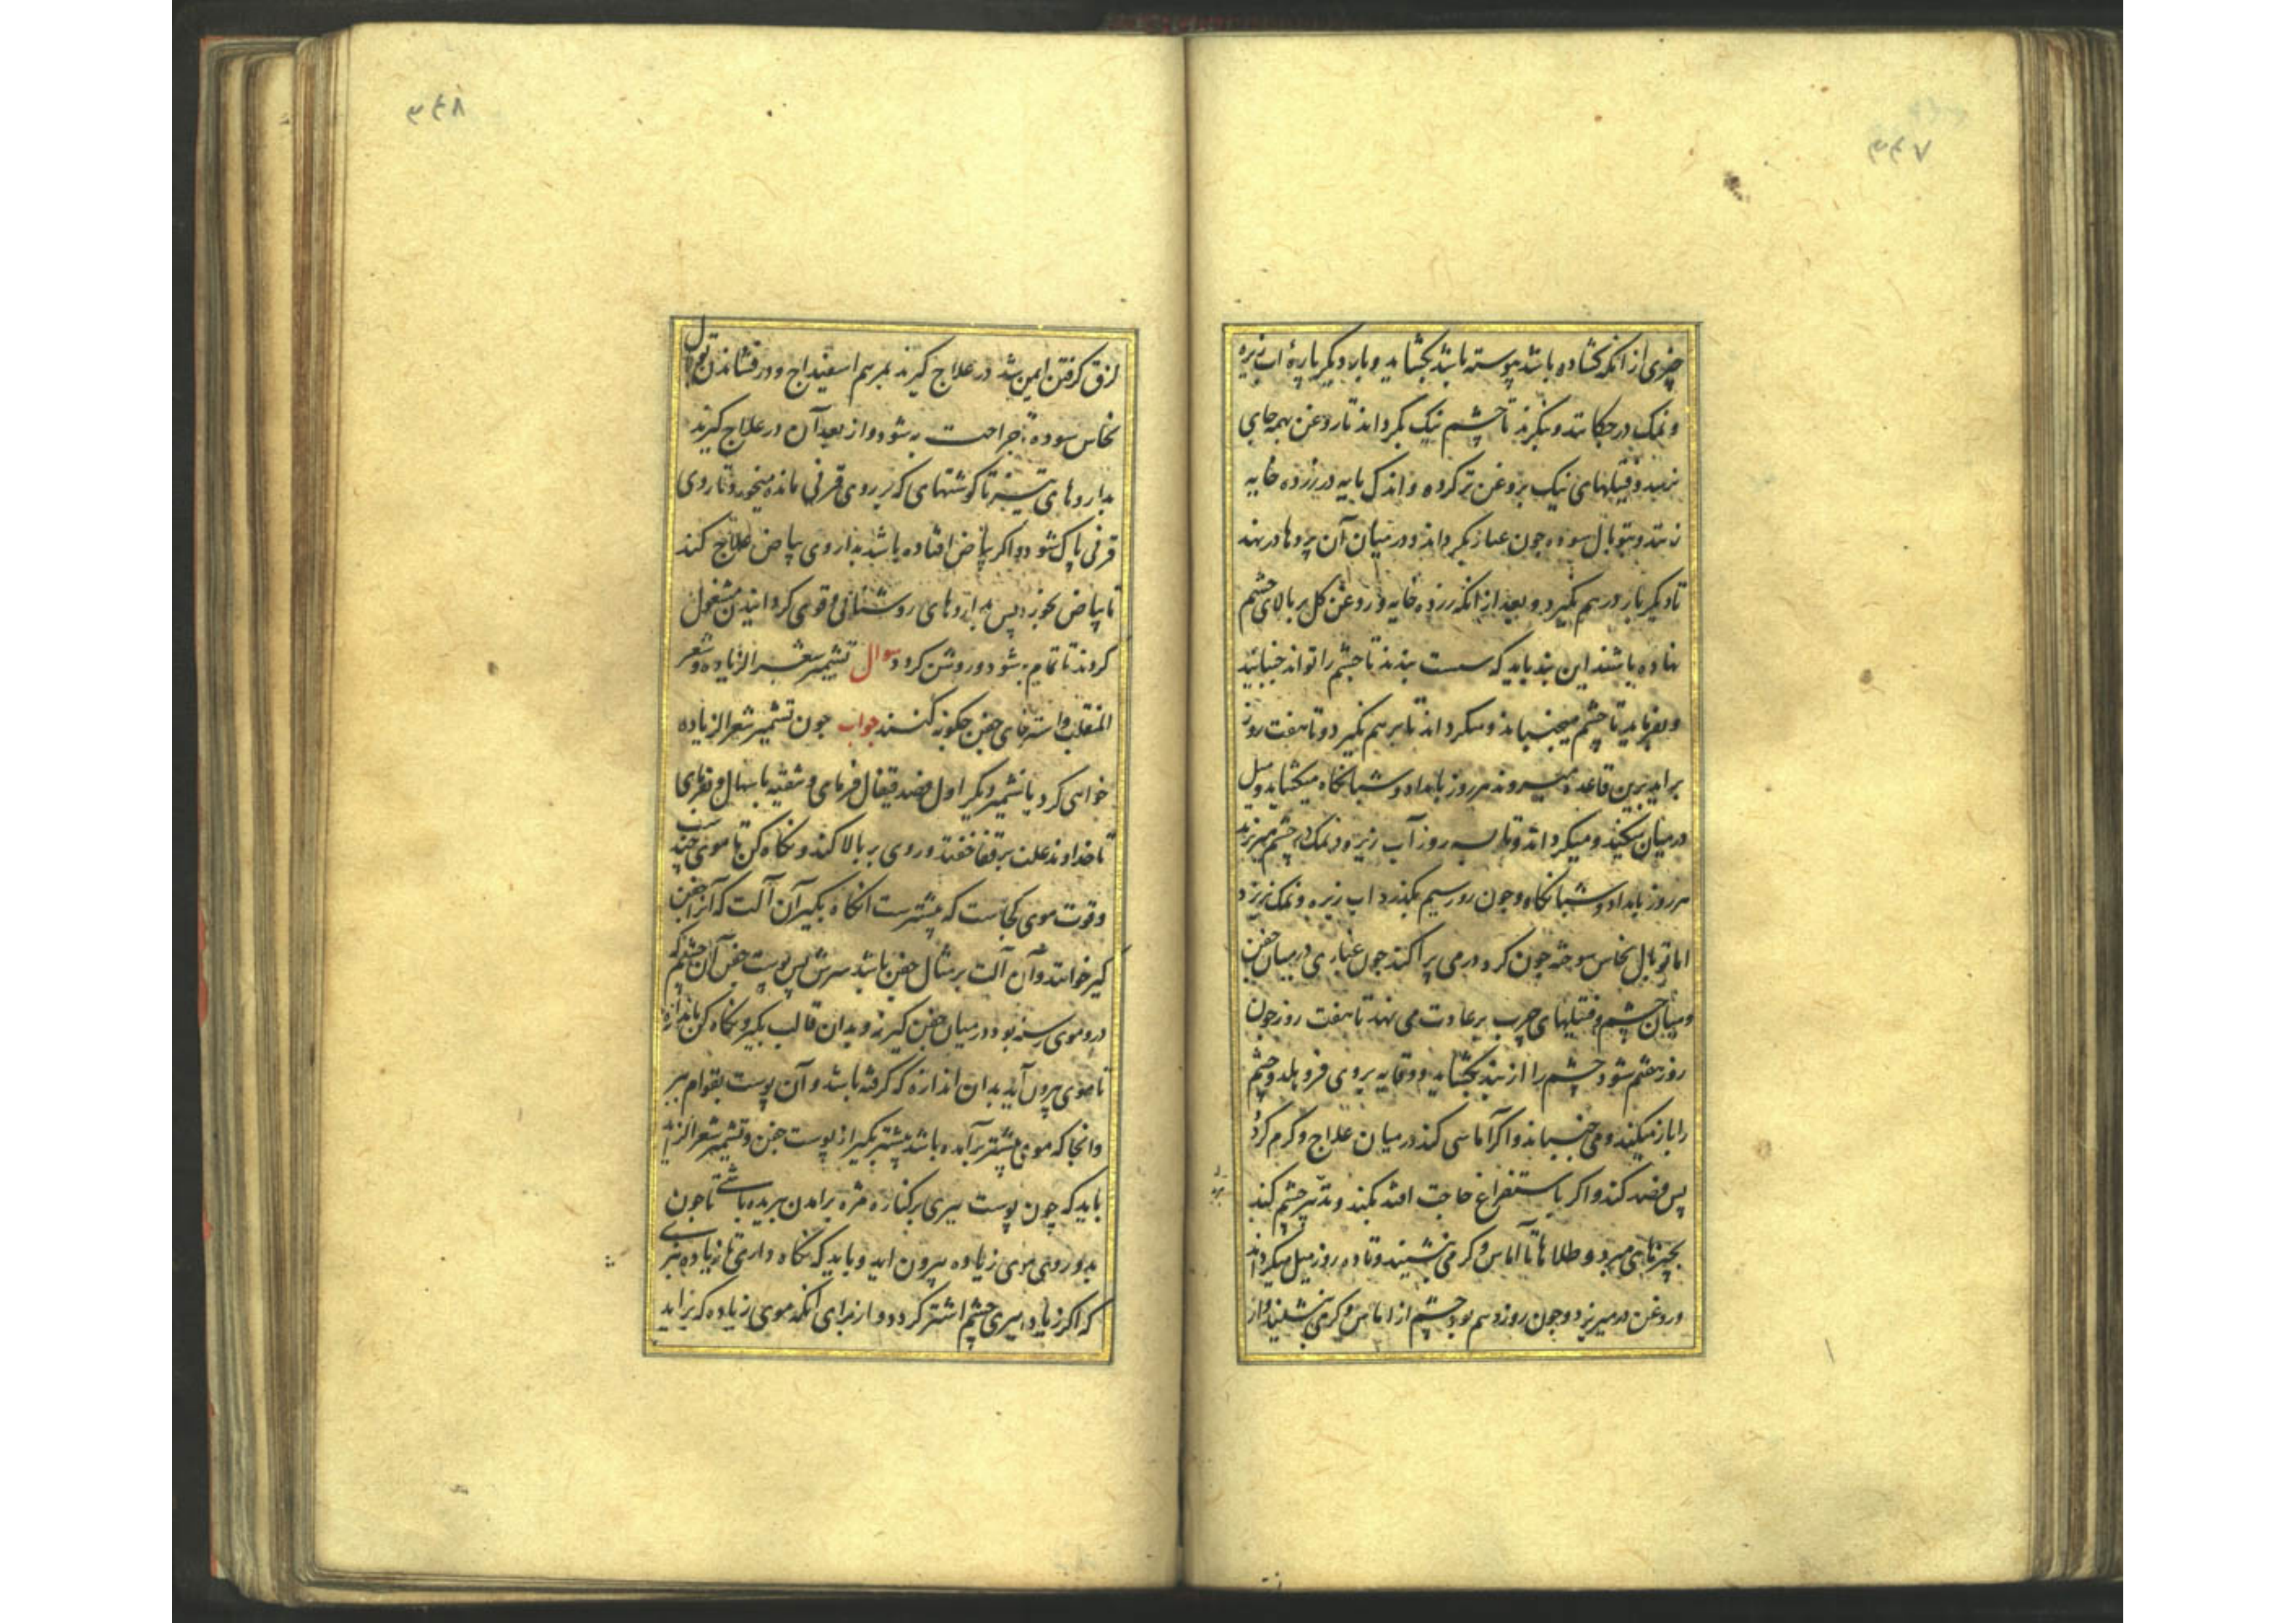 ۳۴۷
چیزی از انکه کشاده باشد پیوسته باشد بکشاید و بار دیکر پارهٔ اب زیره
و نمک در چکانند و بنکرند تا چشم نیک بکرداند تا روغن بهمه جای
برسد و فتیلهای نیک بروغن تر کرده و اندک مایه در زرده خایه
زنند و توبال سوده چون غبار بکرداند و در میان آن پروها در نهند
تا دیکر بار در هم نکیرد و بعد از انکه زرده خایه و روغن کل بر بالای چشم
نهاده باشند این بند باید که سست بندند تا چشم را تواند جنبانید
و بفرماید تا چشم میجنباند و میکرداند تا بر هم نکیرد و تا هفت روز
براید برین قاعده میروند هر روز بامداد و شبانکاه میکشاید و میل
در میان میکند و میکرداند و تا سه روز آب زیره و نمک در چشم میریزند
هر روز بامداد و شبانکاه و چون روز سیم بکذرد اب زیره و نمک نریزد
اما توبال نحاس سوخته چون کرد در می پراکند چون غباری در میان جفن
و میان چشم و فتیلهای چرب بر عادت می نهند تا هفت روز چون
روز هفتم شود چشم را از بند بکشاید و وقایه بر روی فرو هلد و چشم
را باز میکند و می جنباند و اکر آماسی کند در میان علاج و کرم کردد
پس فصد کند و اکر باستفراغ حاجت افتد بکند و تدبیر چشم کند
بچیزهای مبرد و طلاها تا آماس و کرمی بنشیند و تا ده روز میل میکرداند
و روغن در میریزد و چون روز دهم بود چشم از اماس و کرمی بنشیند و از
۳۴۸
لزق کرفتن ایمن شد در علاج کیرند بمرهم اسفیداج و در فشاندن توبال
نحاس سوده تا جراحت به شود و از بعد آن در علاج کیرند
بداروهای تیز تا کوشتهای که بر روی قرنی مانده میخورد و تا روی
قرنی پاک شود و اکر بیاض افتاده باشد بداروی بیاض علاج کند
تا بیاض بخورد پس بداروهای روشنائی و قوی کردانیدن مشغول
کردند تا تمام به شود و روشن کردد سوال تشمیر شعر الزیاده و شعر
المنقلب و استرخای جفن چکونه کنند جواب چون تشمیر شعر الزیاده
خواهی کرد یا تشمیر دیکر اول فصد قیفال فرمای و تنقیه باسهال و بفرمای
تا خداوند علت بر قفا خفتد و روی بر بالا کند و نکاه کن تا موی چند
و قوت موی کجاست که بیشترست انکاه بکیر آن آلت که آنرا جفن
کیر خوانند و آن آلت بر مثال جفن باشد سرش پس پوست جفن آن چشم که
درو موی رسته بود در میان جفن کیرند و بدان قالب بکیر و نکاه کن باندازه
تا موی بیرون آید بدان اندازه که کرفته باشد و آن پوست بقوام ببر
و انجا که موی بیشتر برآمده باشد بیشتر بکیر از پوست جفن و تشمیر شعر الزیاده
باید که چون پوست ببری بر کناره مژه برامدن بریده باشی تا چون
بدوزی موی زیاده بیرون اید و باید که نکاه داری تا زیاده نبری
که اکر زیاده ببری چشم اشتر کردد و از برای انکه موی زیاده که براید